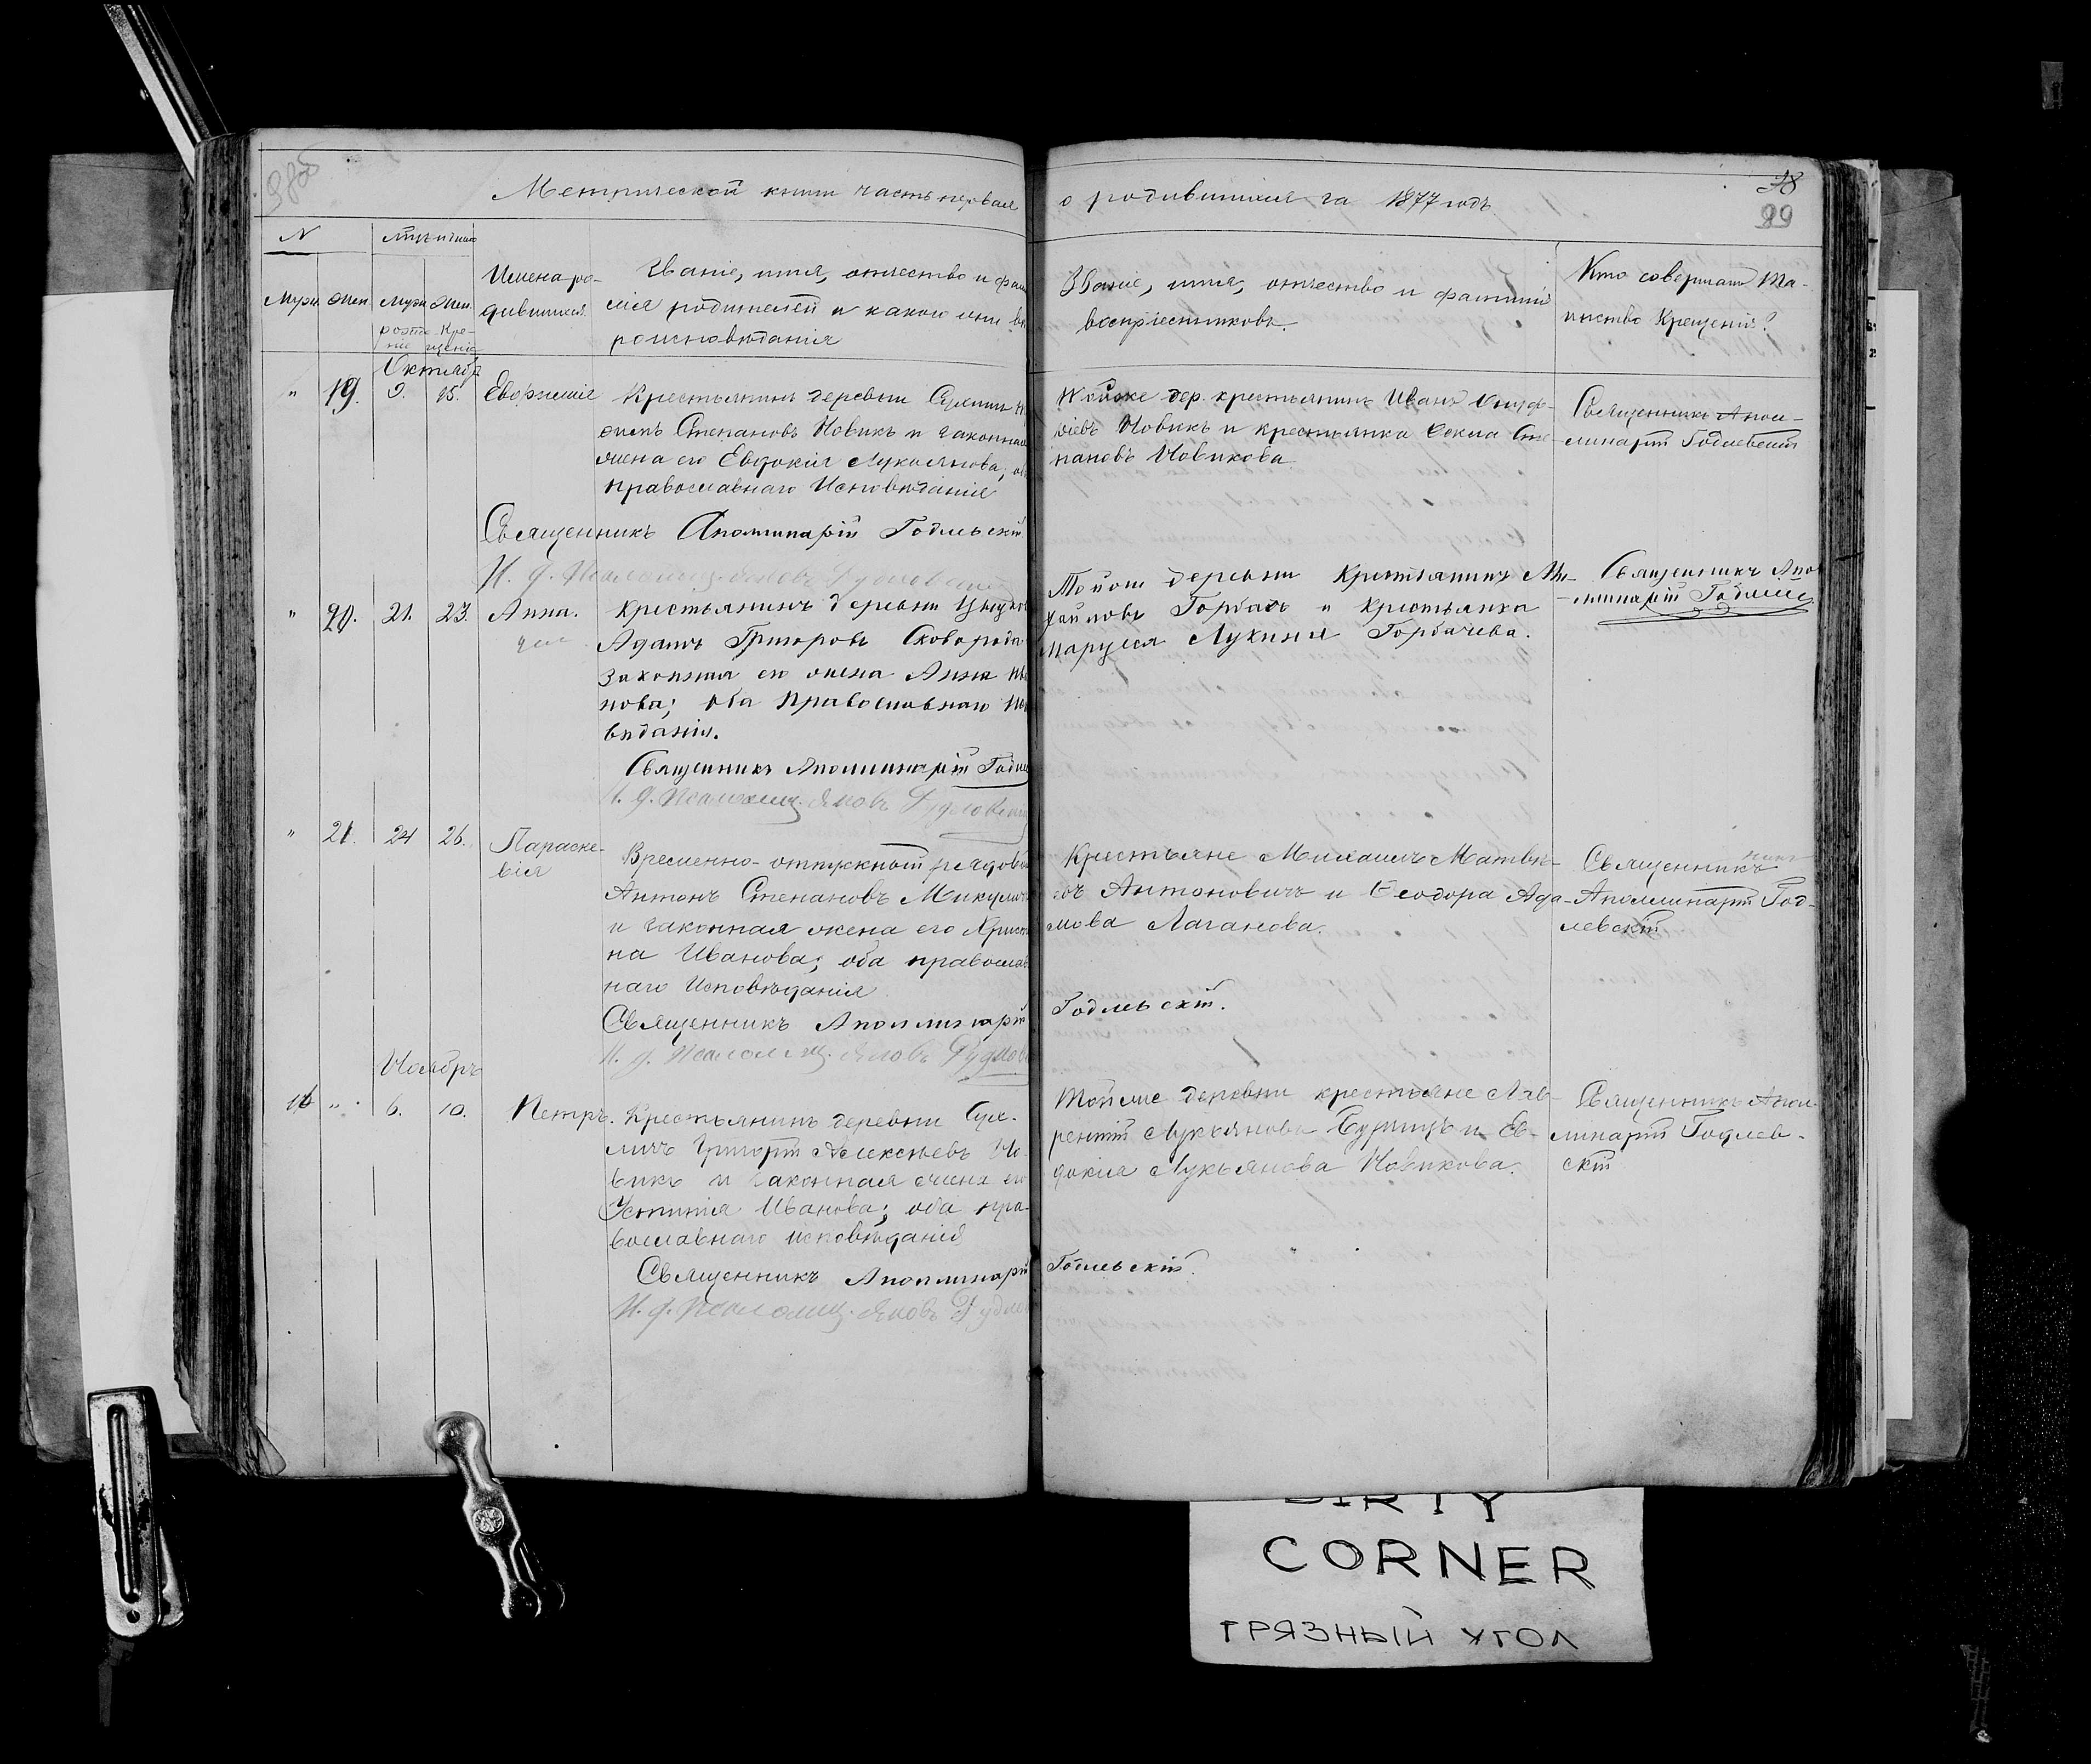 Метрической книги часть первая о родившихся за 1877 годъ
38
99
N
Муж. Жен.
Муж. Жен.
рожде-ніе
Кре-щеніе
Имена ро-
дившихся
Званіе, имя, отчество и фами
лія родителей и какого они вѣ
роисповѣданія
Званіе, имя, отчество и фамилія
воспріемниковъ.
Кто совершалъ Та-
инство Крещенія?
Октябр
" 19. 9. 15. Евфимія
Крестьянинъ деревни
Степановъ Новикъ и законная
жена его Евдокія Лукьянова,
православнаго Исповѣданія
Священникъ Аполлинарій Годлевскій
И. д. Псаломщ. Яковъ
дер. крестьянинъ Иванъ
Новикъ и крестьянка Сте-
пановъ Новикова
Священникъ Апол-
линарій Годлевскій
" 20. 21. 23. Анна.
Крестьянинъ деревни
Адамъ Григоровъ Сковорода
законная его жена Анна
нова; оба Православнаго Испо
вѣданія.
Священникъ Аполлинарій Годле
И. д. Псаломщ. Яковъ
Тойже деревни Крестьянинъ Ми-
хайловъ Горбачъ и Крестьянка
Маруся Лукина Горбачева.
Священникъ Апо
ллинарій Годлев
" 21. 24 26. Параске-
вія
Временно-отпускной рядовой
Антонъ Степановъ Микулич
и законная жена его Крист
на Иванова; оба православ
наго Исповѣданія
Священникъ Аполлинарій Годлевскій.
И. д. Псаломщ. Яковъ
Крестьяне Михаилъ Матвѣ-
евъ Антоновичъ и Ѳеодора Ада-
мова Лаганова.
Священникъ
Аполлинарій Год-
левскій
Ноябрь
16 " 6. 10. Петръ.
Крестьянинъ деревни Суле-
мичъ Григорій Алексѣевъ Но-
викъ и законная жена его
Устинія Иванова; оба пра-
вославнаго исповѣданія
Священникъ Аполлинарій Годлевскій.
И. д. Псаломщ. Яковъ
Тойже деревни крестьяне Лав-
рентій Лукьяновъ и Ев-
докія Лукьянова Новикова.
Священникъ Апол-
линарій Годлев-
скій
DIRTY
CORNER
ГРЯЗНЫЙ УГОЛ